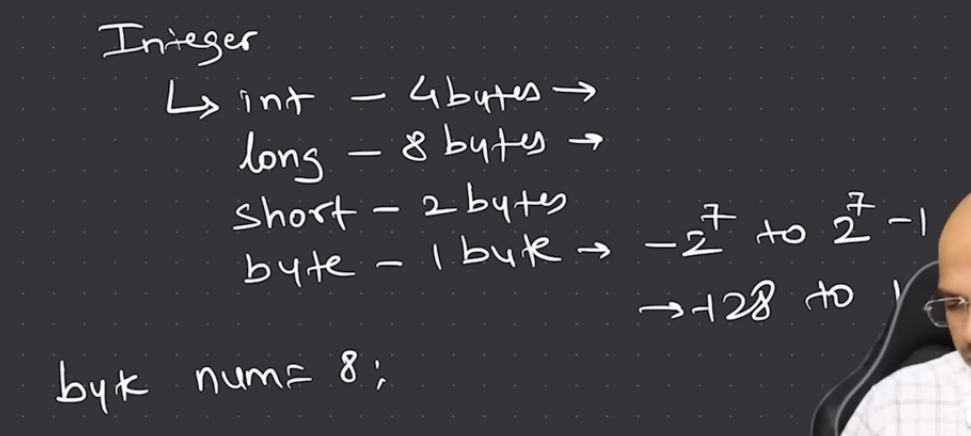 Integer
↳ int - 4 bytes →
long - 8 bytes →
short - 2 bytes
byte - 1 byte → -2⁷ to 2⁷-1
→ -128 to 1
byte num = 8;